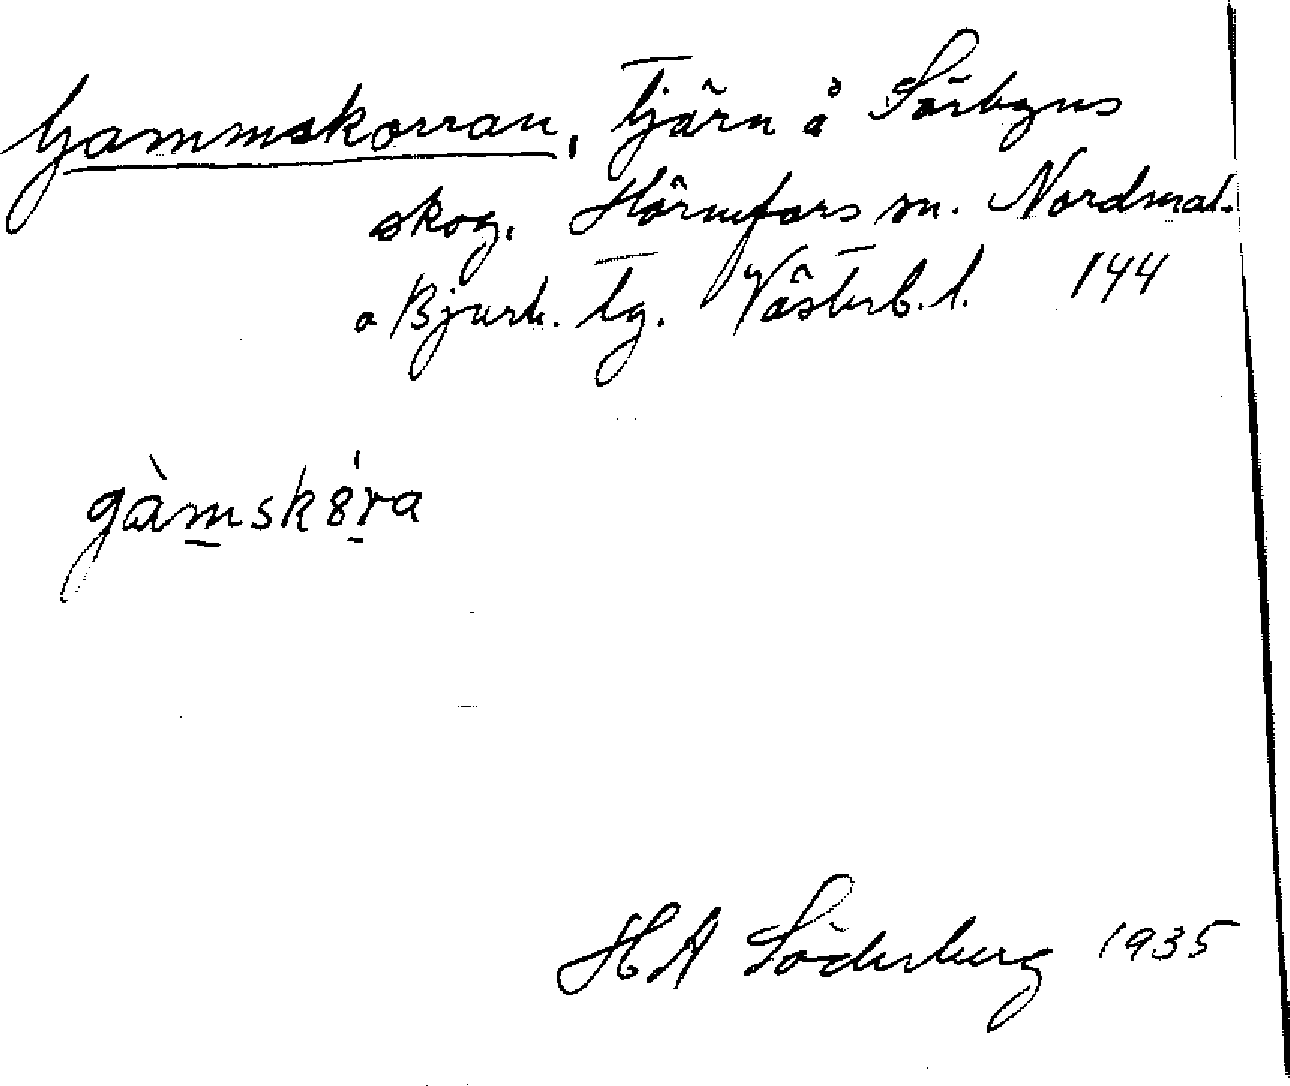 Gammskorran, Tjärn å Sörbyns
skog. Hörnefors sn. Nordmal.
o Bjurh. tg. Västerb. l. 144
gàmsk8́ra
H A Söderberg 1935